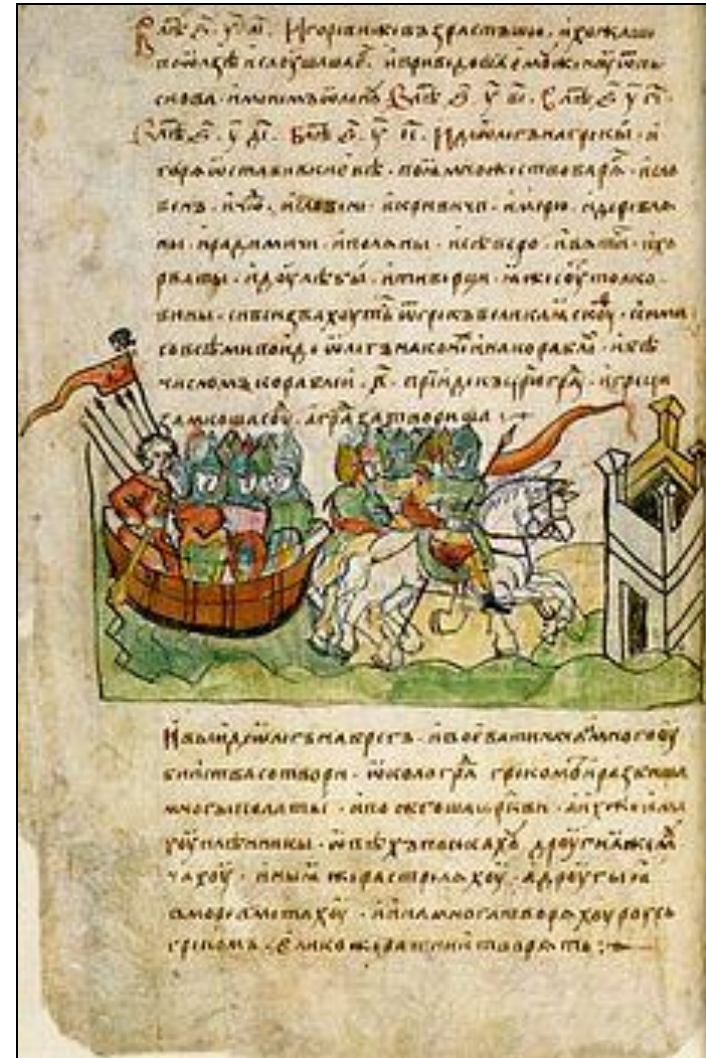 В лѣ ҂ѕ҃. у҃. аі҃. Игореви же възрастъшю. и хожаше
по ѡлзѣ и слоушаше. и приведоша емоу женоу ѿ пь
скова. именемъ ѡленоу. В лѣ ҂ѕ҃ у҃ ві҃. В лѣ ҂ѕ҃ у҃ гі҃.
В лѣ ҂ѕ҃. у҃ ді҃. В лѣ ҂ѕ҃. у҃ еі҃. Иде ѡлегъ на грекы. и
горѧ ѡставивъ кие вѣ. поѧ множество варѧ. и сло
венъ. и чю. и словени. и кривичи. и мерю. и деревлѧ
ны. и радимичи. и полѧны. и севѣро. и вѧтичи. и хо
рваты. и доулѣбы. и тиверци. ӕже соуть толко
вины. си вси звахоуть ѿ грекъ великаѧ скоу. с ними
со всѣми поиде ѡлегъ на кони и на корабли. и бѣ
числомъ кораблеи. в҃. прииде къ црюграⷣ. и греци
замкоша соу. а граⷣ затвориша
И вылиде ѡлегъ на брегъ. и воевати нача и много оу
биiства сотвори. ѡколо граⷣ грекомъ и разбиша
многы полаты. и пожгоша цр҃кви. а их же има
хоу плѣнникы. ѡвѣхъ посекахоу дроугиа же моучⷱ
чахоу. иныа же растрелѧхоу. а дроугыа
в море вметахоу. и ина многа творѧхоу роусь
грекомъ. елико же ратнии творѧть